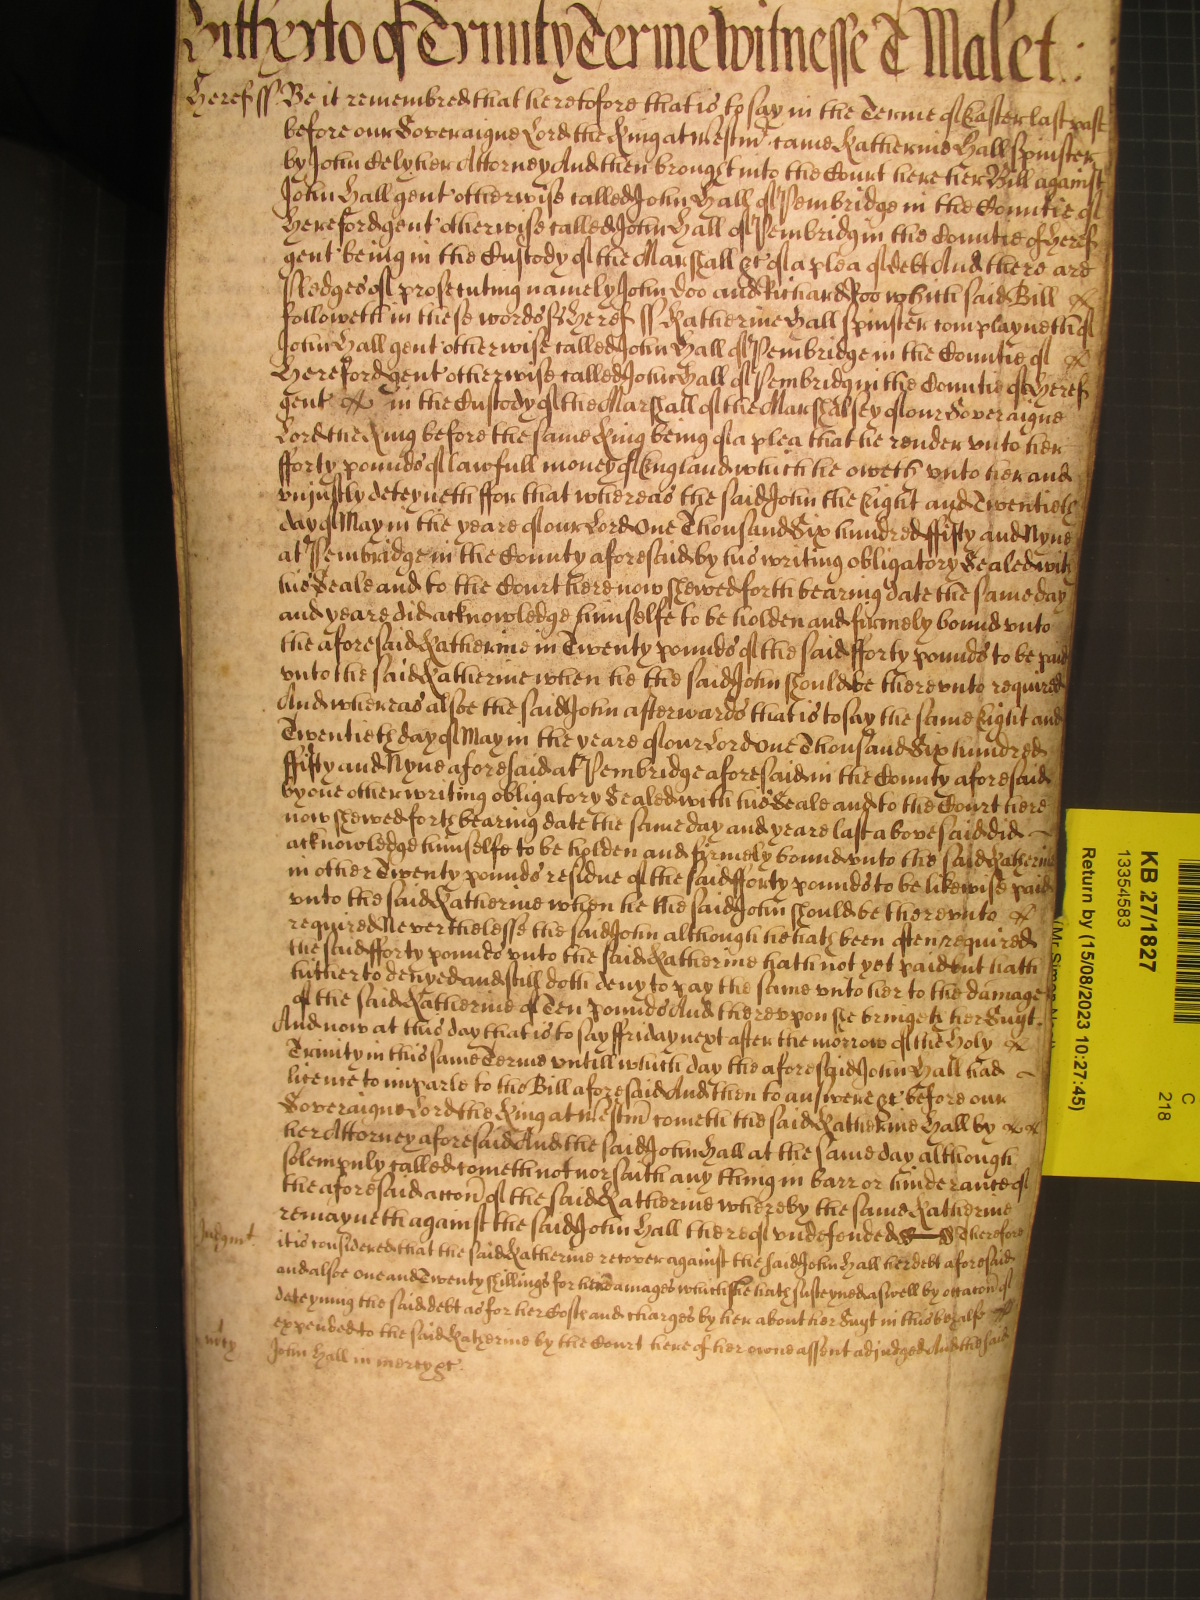 Hitherto of Trinity Terme Witnesse T Malet
Heref ss Be it remembred that heretofore that is to say in the Terme of Easter last past
before our Soveraigne Lord the King at Westm' came Katherine Hall Spinster
by John Dely her Attorney And then brought into the Court here her Bill against
John Hall gent' otherwise called John Hall of Pembridge in the Countie of
Hereford gent' otherwise called John Hall of Pembridg in the Countie of Heref
gent' being in the Custody of the Marshall &c' of a plea of debt And there are
Pledges of prosecuting namely John Doo and Richard Roo which said Bill
followeth in these words ss Heref ss Katherine Hall Spinster complayneth of
John Hall gent' otherwise called John Hall of Pembridge in the Countie of
Hereford gent' otherwise called John Hall of Pembridg in the Countie of Heref
gent' in the Custody of the Marshall of the Marshalsey of our Soveraigne
Lord the King before the same King being of a plea that he render vnto her
fforty pounds of lawfull money of England which he oweth vnto her and
vnjustly deteyneth ffor that whereas the said John the Eight and Twentieth
day of May in the yeare of our Lord One Thousand Six hundred ffifty and Nyne
at Pembridge in the County aforesaid by his writing obligatory Sealed with
his Seale and to the Court here now shewed forth bearing date the same day
and yeare did acknowledge himselfe to be holden and firmely bound vnto
the aforesaid Katherine in Twenty pounds of the said fforty pounds to be paid
vnto the said Katherine when he the said John should be therevnto required
And whereas alsoe the said John afterwards that is to say the same Eight and
Twentieth day of May in the yeare of our Lord One Thousand Six hundred
ffifty and Nyne aforesaid at Pembridge aforesaid in the County aforesaid
by one other writing obligatory Sealed with his Seale and to the Court here
now shewed forth bearing date the same day and yeare last abovesaid did
acknowledge himselfe to be holden and firmely bound vnto the said Katherine
in other Twenty pounds residue of the said fforty pounds to be likewise paid
vnto the said Katherine when he the said John should be therevnto
required Neverthelesse the said John although he hath been often required
the said fforty pounds vnto the said Katherine hath not yet paid but hath
hitherto denyed and still doth deny to pay the same vnto her to the damage
of the said Katherine of Ten pounds And therevpon she bringeth her Suyt.
And now at this day that is to say ffriday next after the morrow of the Holy
Trinity in this same Terme vntill which day the aforesaid John Hall had
licence to imparle to the Bill aforesaid And then to answere &c' before our
Soveraigne Lord the King at Westm' cometh the said Katherine Hall by
her Attorney aforesaid And the said John Hall at the same day although
solempnly called cometh not nor saith any thing in barr or hinderance of
the aforesaid accon' of the said Katherine whereby the same Katherine
remayneth against the said John Hall thereof vndefended Therefore
Judgmt it is considered that the said Katherine recover against the said John Hall her debt aforesaid
and alsoe one and Twenty shillings for her damages which she hath susteyned aswell by occacon' of
deteyning the said debt as for her Costs and charges by her about her Suyt in this behalfe
expended to the said Katherine by the Court here of her owne assent adjudged And the said
John Hall in mercy &c'.
KB 27/1827
13354583
C
218
Return by (15/08/2023 10:27:45)